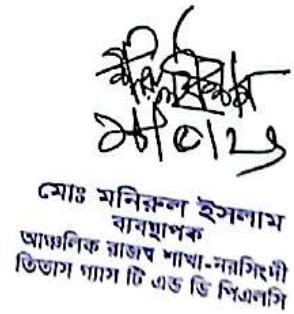 মোঃ মনিরুল ইসলাম
ব্যবস্থাপক
আঞ্চলিক রাজস্ব শাখা-নরসিংদী
তিতাস গ্যাস টি এন্ড ডি পিএলসি